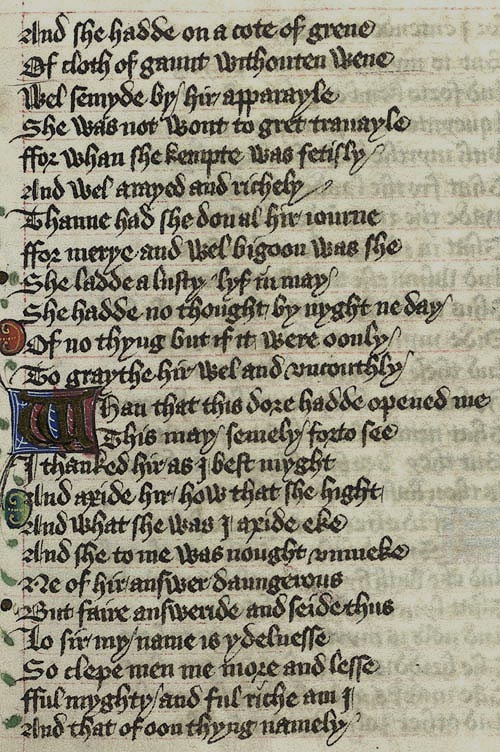 And she hadde on a cote of grene
Of cloth of gaunt withouten wene
Wel semyde by hir apparayle
She was not wont to gret trauayle
ffor whan she kempte was fetisly
And wel arrayed and richely
Thanne had she don al hir iourne
ffor merye and wel bigoon was she
She ladde a lusty lyf in may
She hadde no thought by nyght ne day
Of no thyng but if it were oonly
To graythe hir wel and vncouthly
Whan that this dore hadde opened me
This may semely forto see
I thanked hir as I best myght
And axide hir how that she hight
And what she was I axide eke
And she to me was nought vnmeke
Ne of hir answer daungerous
But faire answeride and seide thus
Lo sir my name is ydelnesse
So clepe men me more and lesse
fful myghty and ful riche am I
And that of oon thyng namely